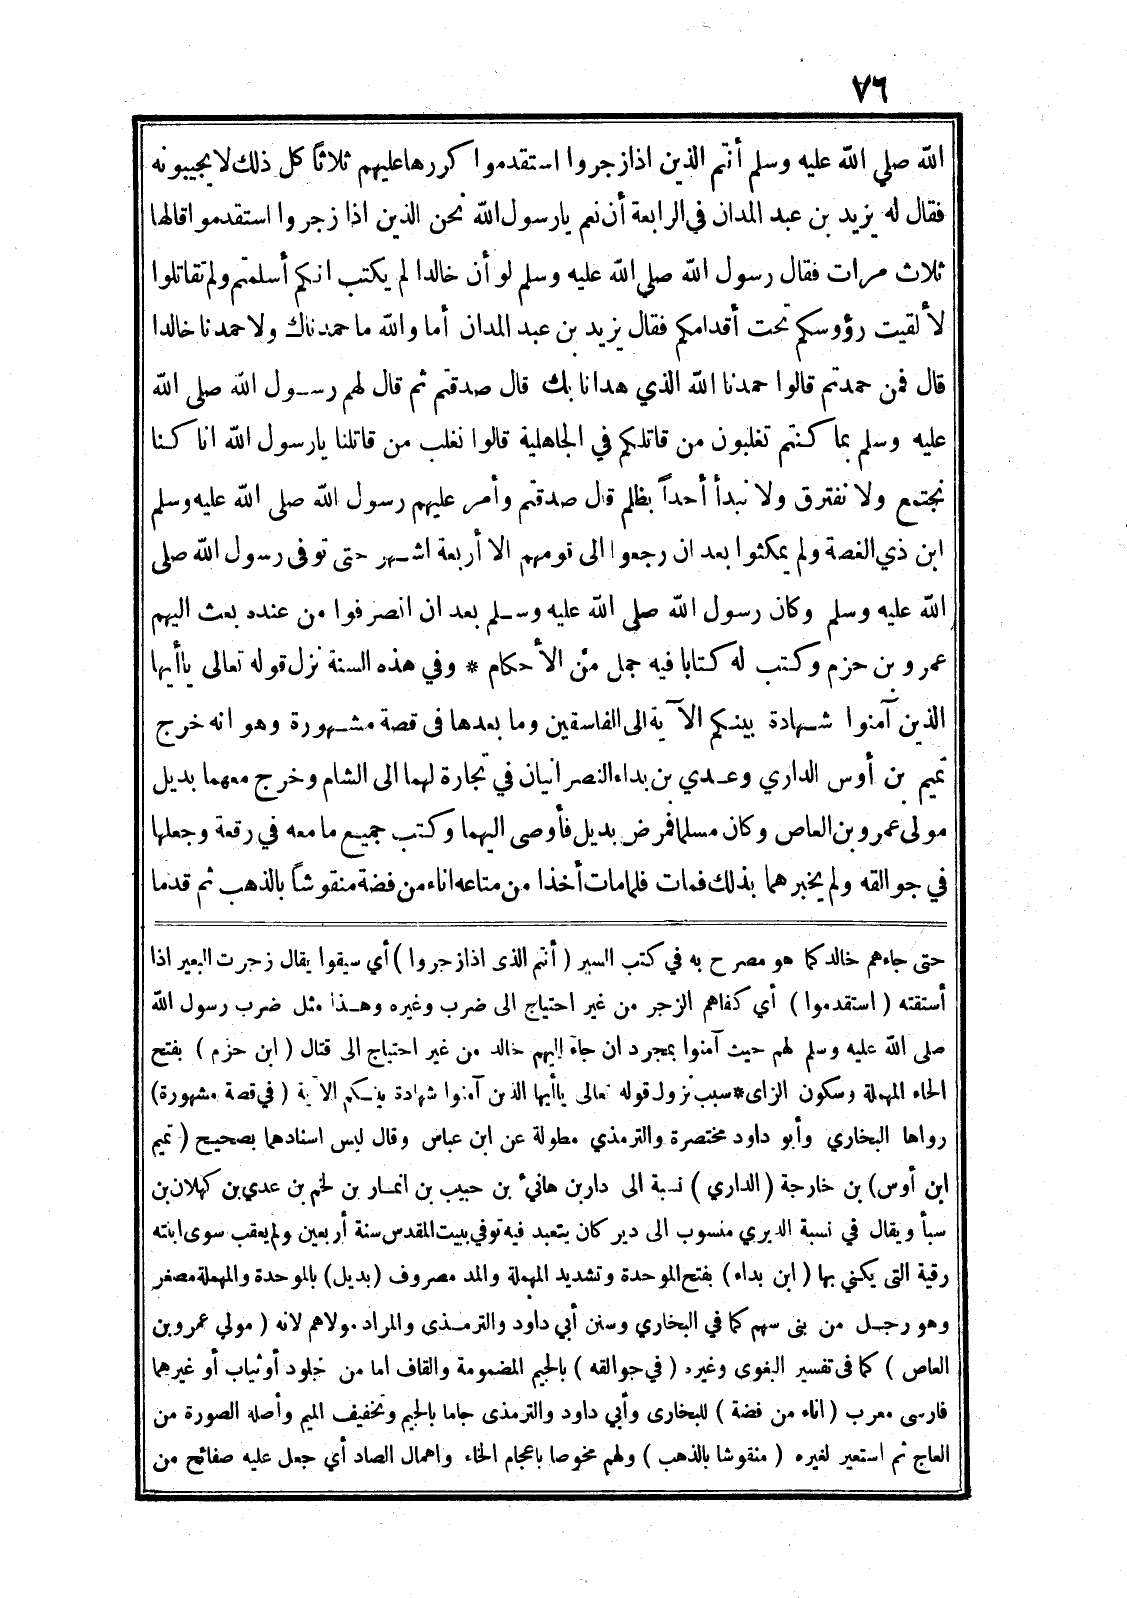 ٧٦
الله صلي الله عليه وسلم أنتم الذين اذازجروا استقدموا كررهاعليهم ثلاثاً كل ذلك لايجيبونه
فقال له يزيد بن عبد المدان في الرابعة أن نعم يارسول الله نحن الذين اذا زجروا استقدموا قالها
ثلاث مرات فقال رسول الله صلي الله عليه وسلم لو أن خالدا لم يكتب انكم أسلمتم ولم تقاتلوا
لألقيت رؤوسكم تحت أقدامكم فقال يزيد بن عبد المدان أما والله ماحمدناك ولاحمدنا خالدا
قال فمن حمدتم قالوا حمدنا الله الذي هدانا بك قال صدقتم ثم قال لهم رسول الله صلي الله
عليه وسلم بما كنتم تغلبون من قاتلكم في الجاهلية قالوا نغلب من قاتلنا يارسول الله انا كنا
نجتمع ولا نفترق ولا نبدأ أحداً بظلم قال صدقتم وأمر عليهم رسول الله صلى الله عليه وسلم
ابن ذي الغصة ولم يمكثوا بعد ان رجعوا الى قومهم الا أربعة اشهر حتى توفى رسول الله صلى
الله عليه وسلم وكان رسول الله صلى الله عليه وسلم بعد ان انصرفوا من عنده بعث اليهم
عمرو بن حزم وكتب له كتابا فيه جمل من الأحكام * وفي هذه السنة نزل قوله تعالى ياأيها
الذين آمنوا شهادة بينكم الآية الى الفاسقين وما بعدها فى قصة مشهورة وهو انه خرج
تميم بن أوس الداري وعدي بن بداء النصرانيان في تجارة لهما الى الشام وخرج معهما بديل
مولى عمرو بن العاص وكان مسلما فمرض بديل فأوصى اليهما وكتب جميع مامعه في رقعة وجعلها
في جوالقه ولم يخبرهما بذلك فمات فلمامات أخذا من متاعه اناء من فضة منقوشاً بالذهب ثم قدما
حتى جاءهم خالد كما هو مصرح به في كتب السير (أنتم الذى اذازجروا) أي سيقوا يقال زجرت البعير اذا
أستقته (استقدموا) أي كفاهم الزجر من غير احتياج الى ضرب وغيره وهذا مثل ضرب رسول الله
صلى الله عليه وسلم لهم حيث آمنوا بمجرد ان جاء اليهم خالد من غير احتياج الى قتال (ابن حزم) بفتح
الحاء المهملة وسكون الزاى*سبب نزول قوله تعالى ياأيها الذين آمنوا شهادة بينكم الآية (في قصة مشهورة)
رواها البخاري وأبو داود مختصرة والترمذي مطولة عن ابن عباس وقال ليس اسنادها بصحيح (تميم
ابن أوس) بن خارجة (الداري) نسبة الى دار بن هانيء بن حبيب بن انمار بن لخم بن عدي بن كهلان بن
سبأ ويقال في نسبة الديري منسوب الى دير كان يتعبد فيه توفي ببيت المقدس سنة أربعين ولم يعقب سوى ابنته
رقية التى يكني بها (ابن بداء) بفتح الموحدة وتشديد المهملة والمد مصروف (بديل) بالموحدة والمهملة مصغر
وهو رجل من بنى سهم كما في البخاري وسنن أبي داود والترمذى والمراد مولاهم لانه (مولي عمرو بن
العاص) كما فى تفسير البغوى وغيره (في جوالقه) بالجيم المضمومة والقاف اما من جلود أو ثياب أو غيرهما
فارسى معرب (اناء من فضة) للبخارى وأبي داود والترمذى جاما بالجيم وتخفيف الميم وأصله الصورة من
العاج ثم استعير لغيره (منقوشا بالذهب) ولهم مخوصا باعجام الخاء واهمال الصاد أي جعل عليه صفائح من